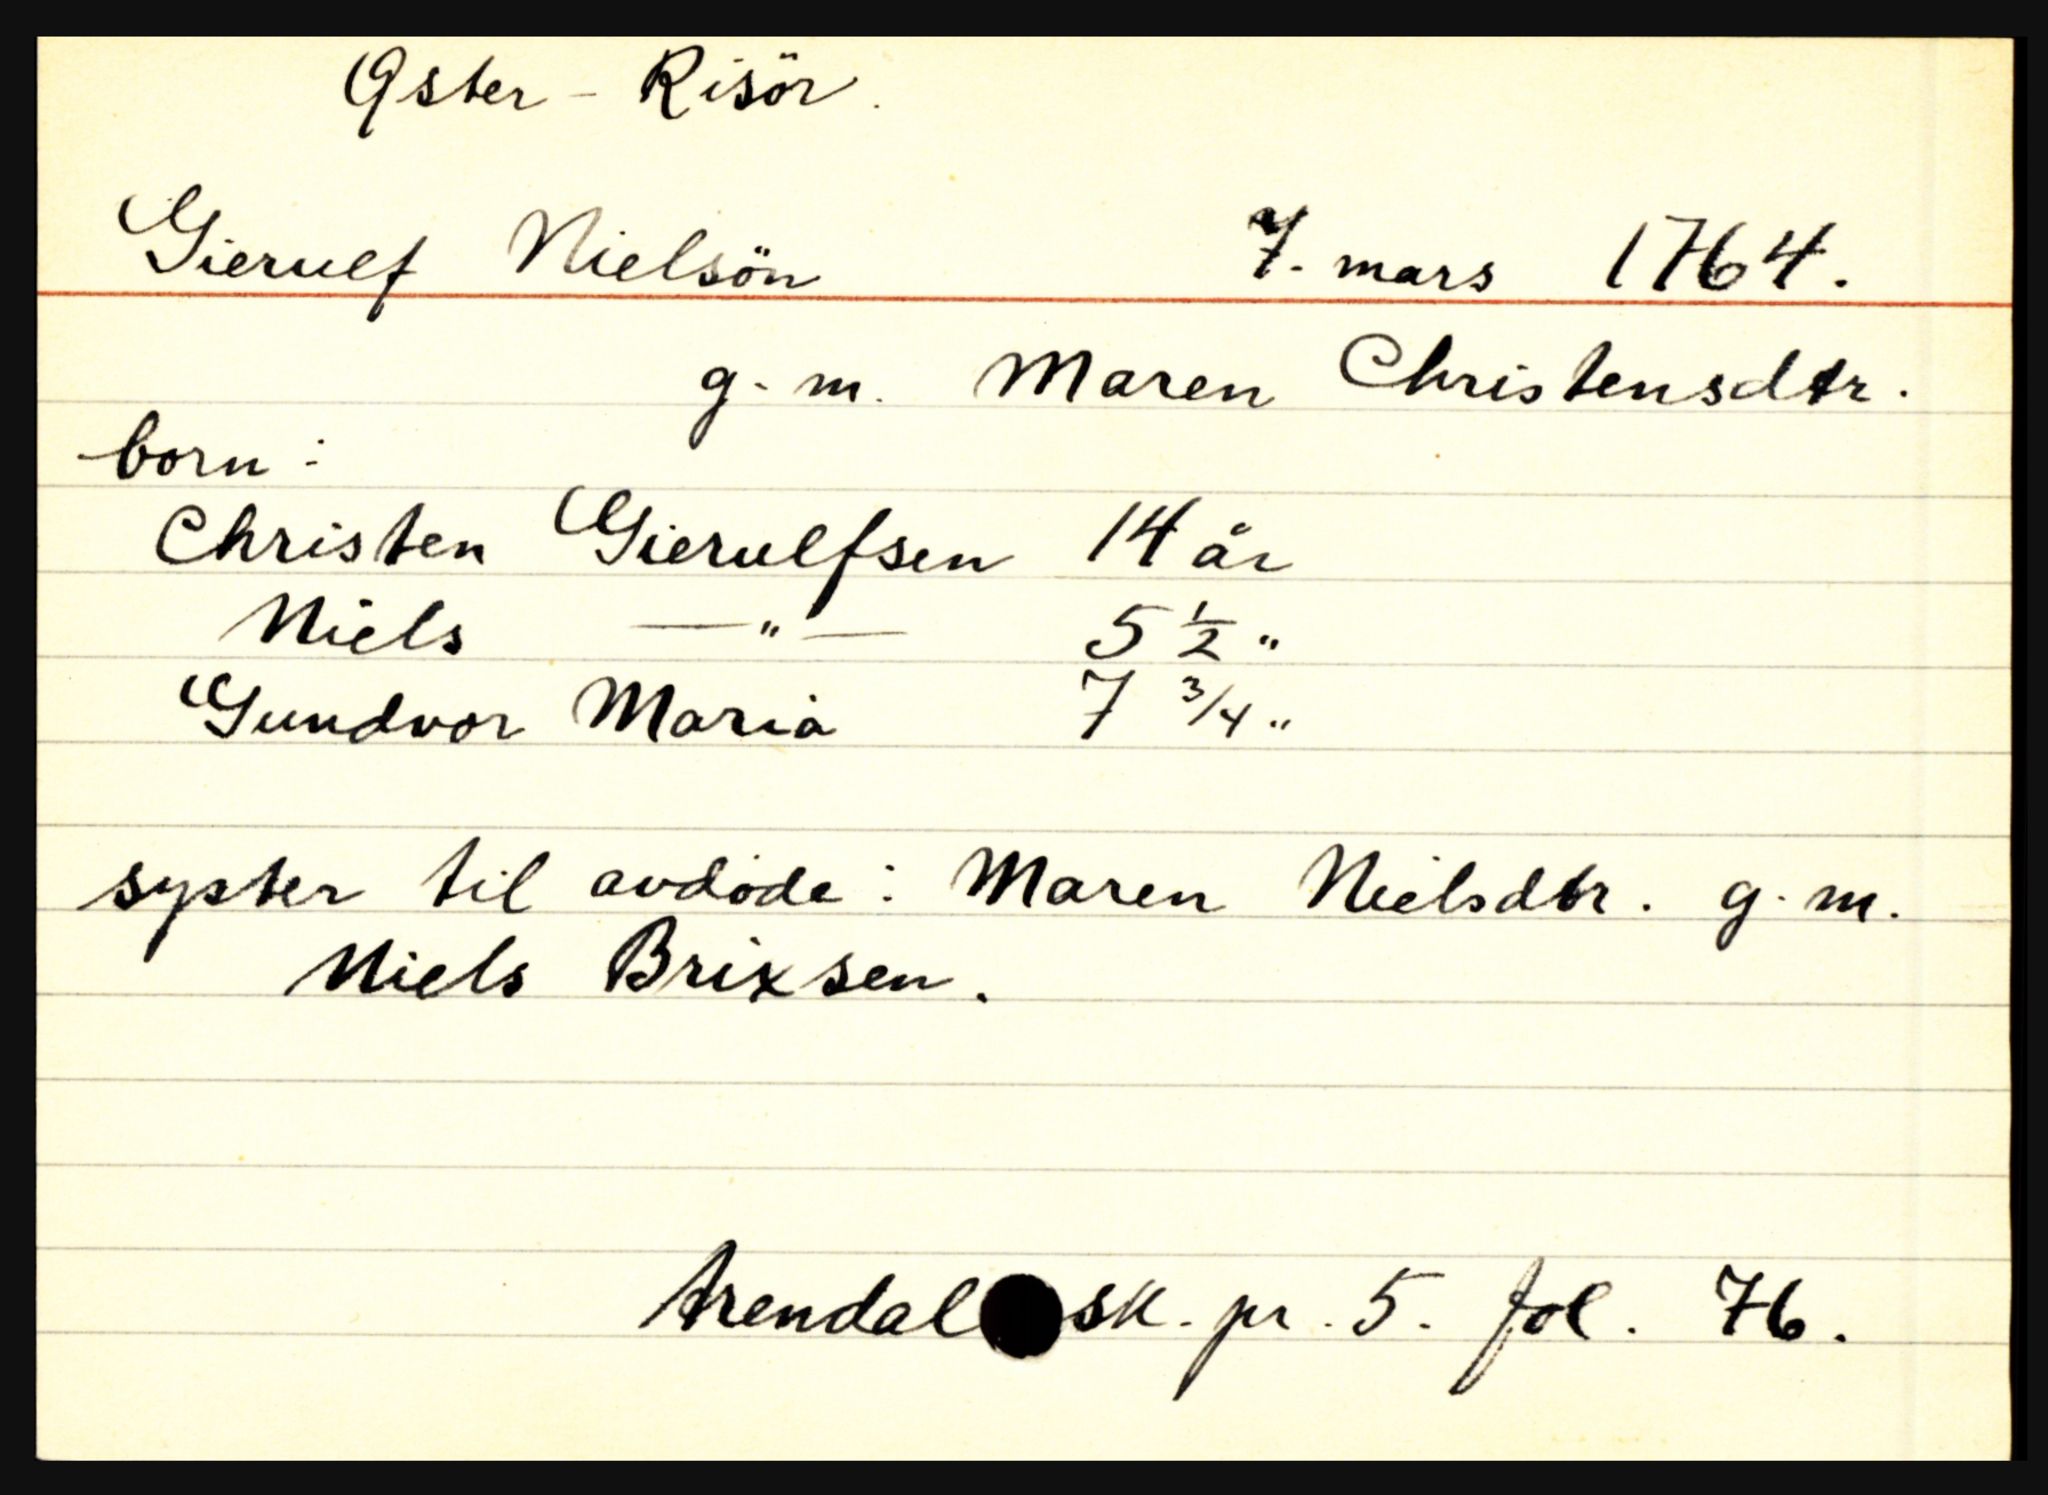 Øster - Risör.
Gierulf Nielsön 7. mars 1764.
g. m. Maren Christensdtr.
born:
Christen Gierulfsen 14 år
Niels — " — 5 1/2 "
Gundvor Maria 7 3/4 "
syster til avdöde: Maren Nielsdtr. g. m.
Niels Brixsen.
Arendal sk. pr. 5. fol. 76.